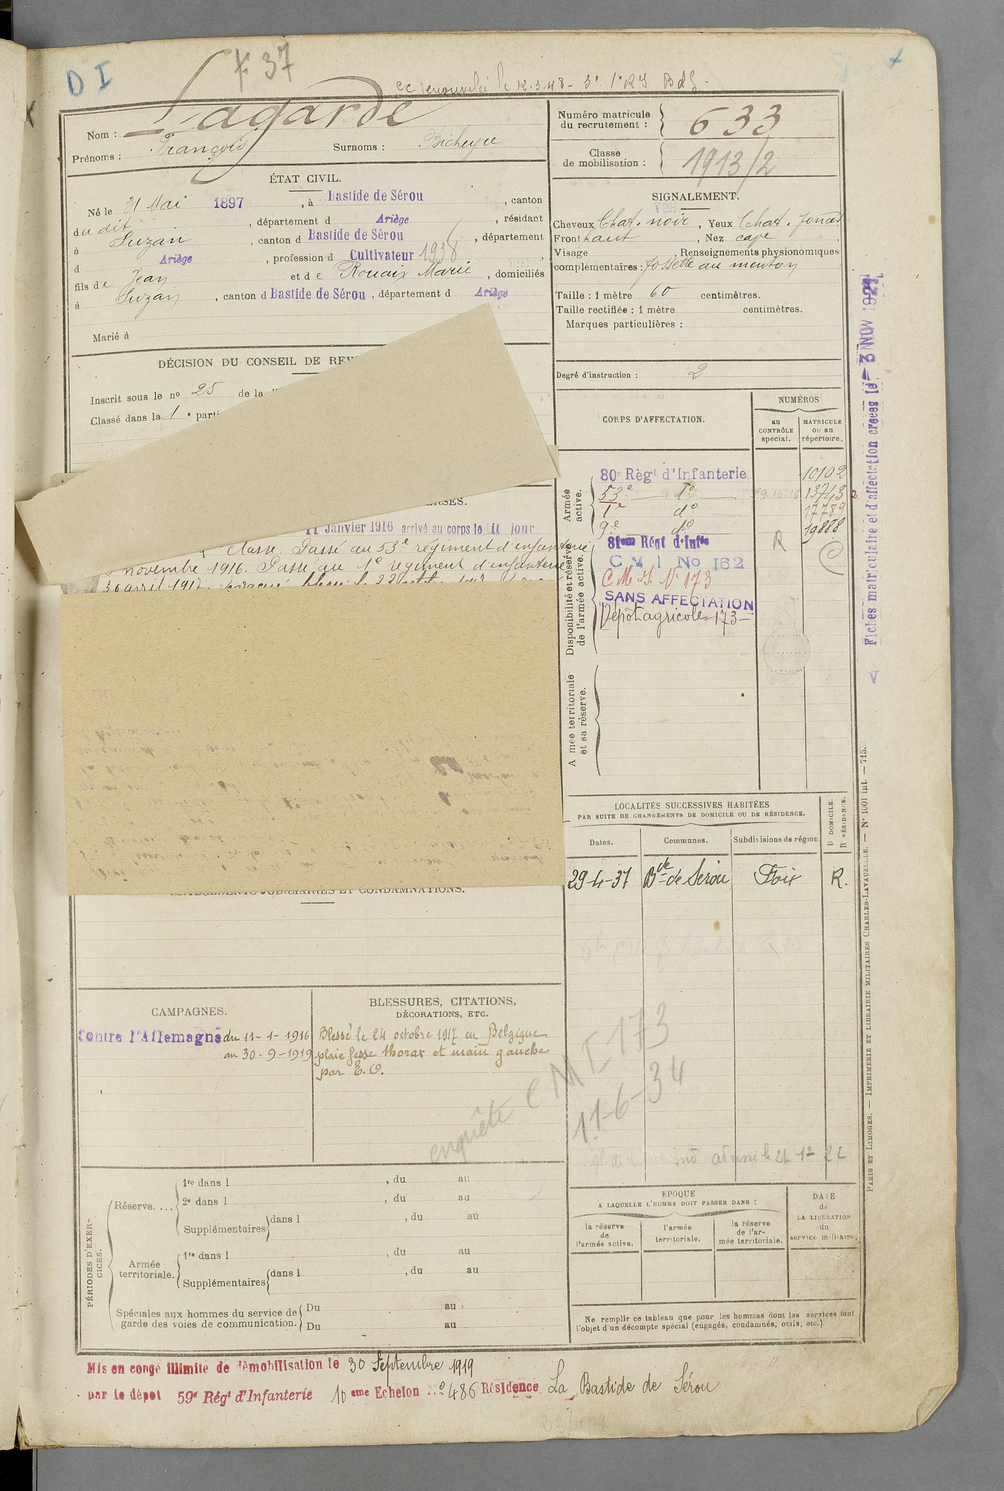 D I
F 37
cc renouvelée le
Nom : Lagarde
Prénoms : François Surnoms : Bicheyre
Numéro matricule du recrutement : 633
Classe de mobilisation : 1913/2
ÉTAT CIVIL.
Né le 21 Mai 1897, à Bastide de Sérou, canton
du dit, département d Ariège, résidant
à Suzan, canton d Bastide de Sérou, département
d Ariège, profession d Cultivateur 1938
fils de Jean et de Rouaix Marie, domiciliés
à Suzan, canton d Bastide de Sérou, département d Ariège
Marié à
SIGNALEMENT.
Cheveux Chat. noir, Yeux Chat. foncé
Front haut, Nez cave
Visage , Renseignements physionomiques
complémentaires : fossette au menton
Taille : 1 mètre 60 centimètres.
Taille rectifiée : 1 mètre centimètres.
Marques particulières :
Degré d'instruction : 2
DÉCISION DU CONSEIL DE REV
Inscrit sous le nº 25 de la
Classé dans la 1e parti
11 Janvier 1916 arrivé au corps le dit jour
Classe. Passé au 53e régiment d'infanterie
novembre 1916. Passé au 1e régiment d'infanterie
30 avril 1917.
CORPS D'AFFECTATION.
NUMÉROS
au CONTRÔLE spécial.
MATRICULE ou au répertoire.
Armée active.
80e Régt d'Infanterie 10102
53e dº 13743
1e dº 17789
9e dº 19888
Disponibilité et réserve de l'armée active.
81eme Régt d'Inftie R
C M I No 162
C M I Nº 173
SANS AFFECTATION
Dépôt agricole 173
Armée territoriale et sa réserve.
Fiches matriculaire et d'affectation créées le - 3 NOV 192
LOCALITÉS SUCCESSIVES HABITÉES
PAR SUITE DE CHANGEMENTS DE DOMICILE OU DE RÉSIDENCE.
D. DOMICILE. R. RÉSIDENCE.
Dates. Communes. Subdivisions de région
29-4-37 Bde de Sérou Foix R.
ANTÉCÉDENTS JUDICIAIRES ET CONDAMNATIONS.
CAMPAGNES.
Contre l'Allemagne du 11-1-1916
au 30-9-1919
BLESSURES, CITATIONS,
DÉCORATIONS, ETC.
Blessé le 24 octobre 1917 en Belgique
plaie fesse thorax et main gauche
par E. O.
enquête CMI 173
11-6-34
PÉRIODES D'EXERCICES.
Réserve....
1re dans l , du au
2e dans l , du au
Supplémentaires dans l , du au
Armée territoriale.
1re dans l , du au
Supplémentaires dans l , du au
Spéciales aux hommes du service de garde des voies de communication.
Du au
Du au
ÉPOQUE
A LAQUELLE L'HOMME DOIT PASSER DANS :
la réserve de l'armée active.
l'armée territoriale.
la réserve de l'armée territoriale.
DATE de LA LIBÉRATION du service militaire.
Ne remplir ce tableau que pour les hommes dont les services font
l'objet d'un décompte spécial (engagés, condamnés, omis, etc.)
PARIS ET LIMOGES. — IMPRIMERIE ET LIBRAIRIE MILITAIRES CHARLES-LAVAUZELLE. — Nº 1001 int. — 715.
Mis en congé illimité de démobilisation le 30 Septembre 1919
par le dépôt 59e Régt d'Infanterie 10 eme Echelon Nº 486 Résidence La Bastide de Sérou